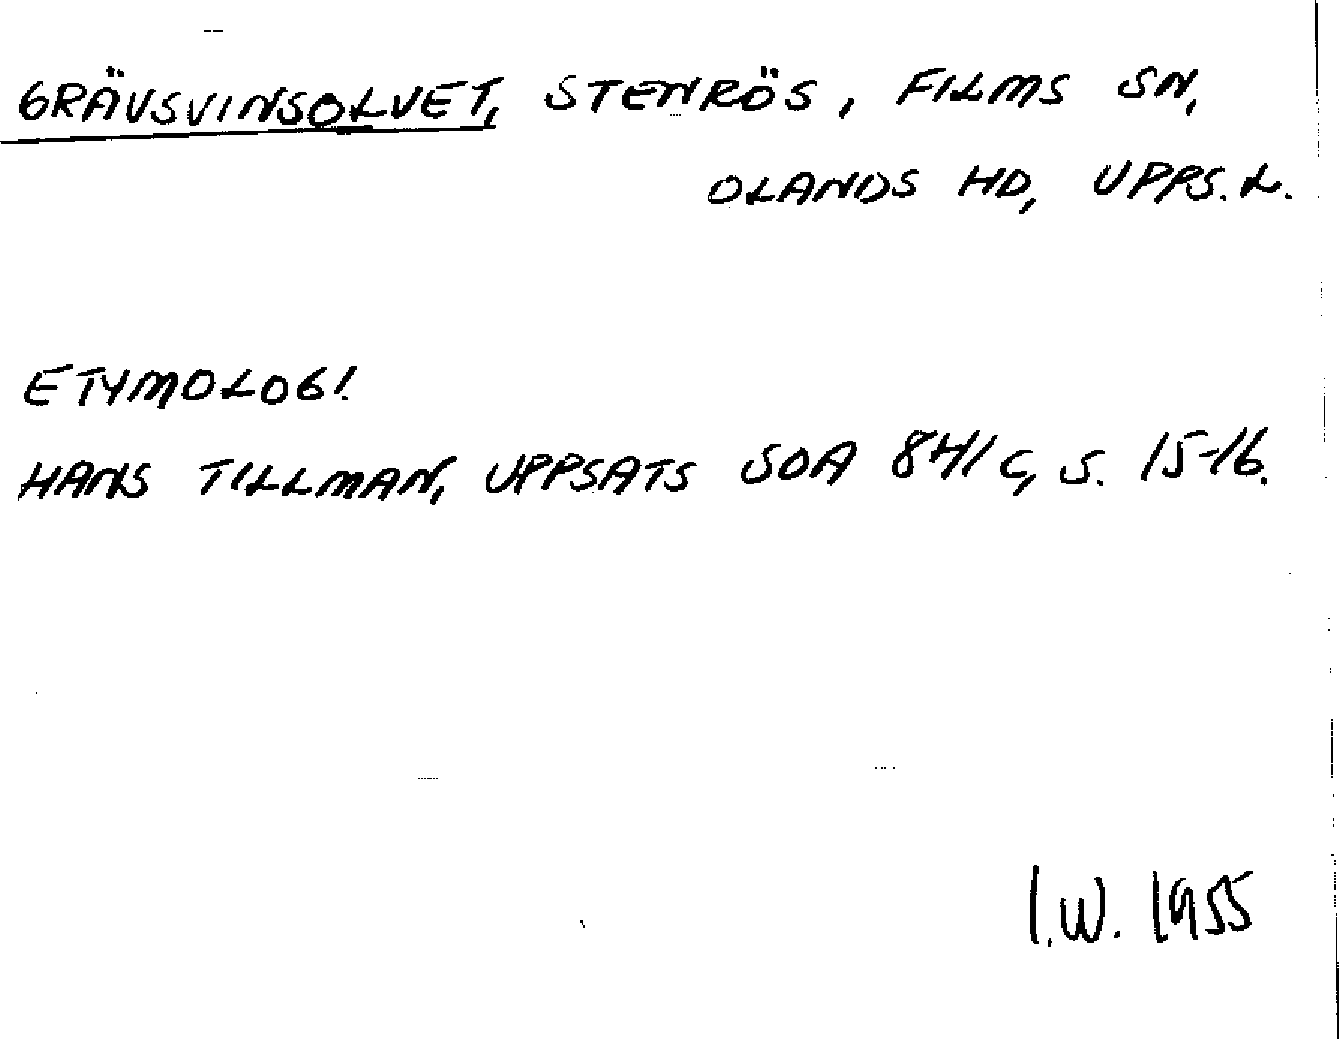 GRÄVSVINSOLVET, STENRÖS, FILMS SN,
OLANDS HD, UPPS. L.
ETYMOLOGI.
HANS TILLMAN, UPPSATS SOA 841 C, S. 15-16.
I.W. 1955